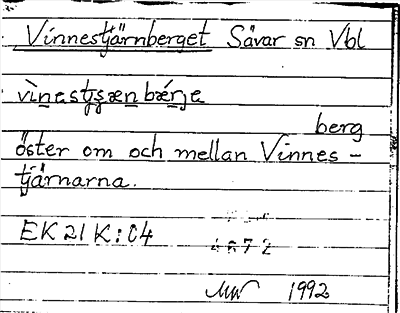 Vinnestjärnberget Sävar sn Vbl
berg
öster om och mellan Vinnes-
tjärnarna.
EK 21 K:04
1992